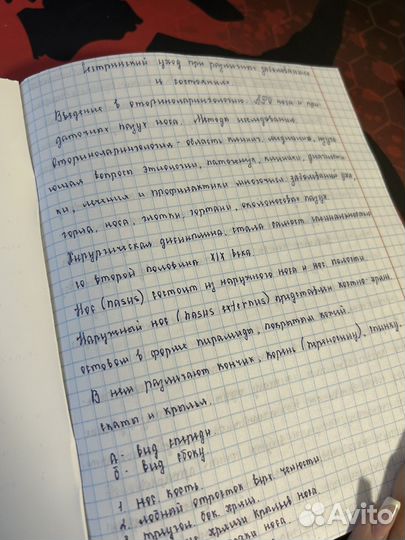 Сестринский уход при различных заболеваниях
и состояниях
Введение в оториноларингологию. АФО носа и при
даточных пазух носа. Методы исследования.
Оториноларингология - область клинич. медицины, изуча
ющая вопросы этиологии, патогенеза, клиники, диагности
ки, лечения и профилактики многочисл. заболеваний уха,
горла, носа, глотки, гортани, околоносовых пазух.
Хирургическая дисциплина, стала самост. специальностью
во второй половине XIX века.
Нос (nasus) состоит из наружного носа и нос. полости.
Наружный нос (nasus externus) представлен костно-хрящ.
остовом в форме пирамиды, покрытым кожей.
В нем различают кончик, корень (переносицу), спинку,
скаты и крылья.
А - вид спереди.
Б - вид сбоку
1. Нос. кость
2. лобный отросток верх. челюсти.
3. треугол. бок. хрящ.
хрящи крыльев носа.
носа.
Avito